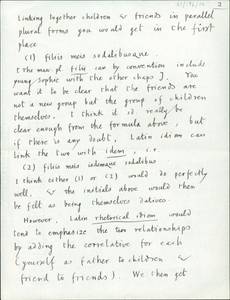 2
linking together children & friends in parallel
plural forms you would get in the first
place
(1) filiis meis sodalibusque.
(The masc pl filiis can by convention include
young Sophie with the other chaps). You
want it to be clear that the friends are
not a new group but the group of children
themselves. I think it is really be
clear enough from the formula above, but
if there is any doubt, Latin idiom can
link the two with idem, i.e.
(2) filiis meis isdemque sodalibus
I think either (1) or (2) would do perfectly
well, & the initials above would then
be felt as being themselves datives.
However, Latin rhetorical idiom would
tend to emphasize the two relationships
by adding the correlative for each
(yourself as father to children &
friend to friends). We then get